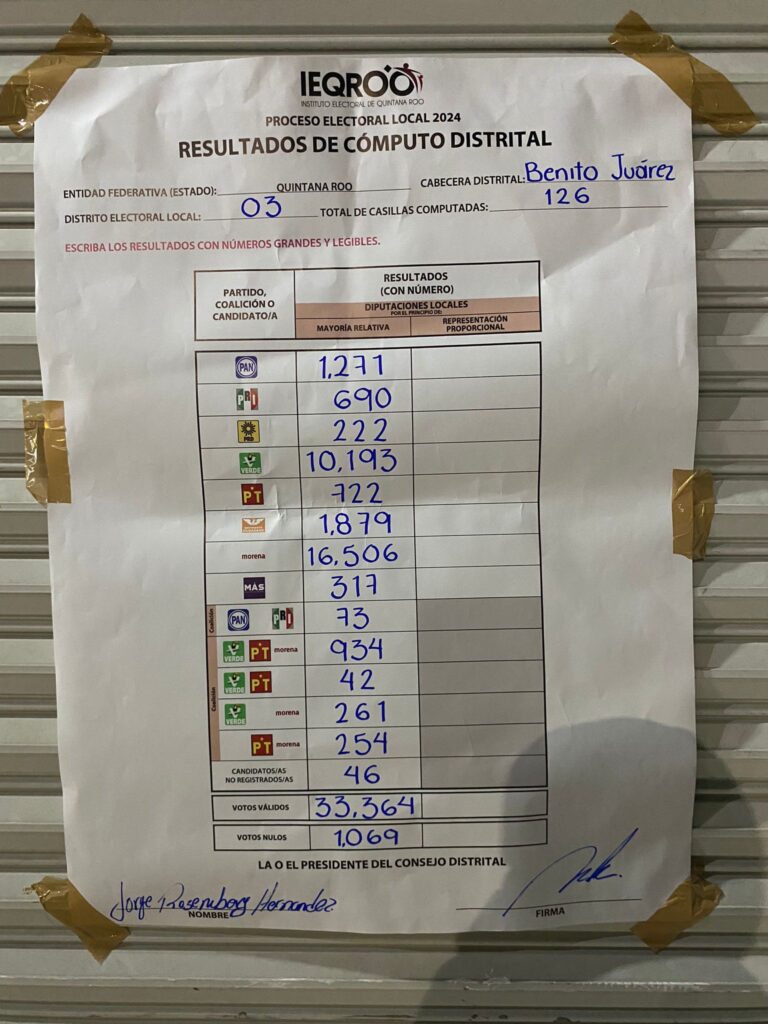 IEQROO
INSTITUTO ELECTORAL DE QUINTANA ROO
PROCESO ELECTORAL LOCAL 2024
RESULTADOS DE CÓMPUTO DISTRITAL
ENTIDAD FEDERATIVA (ESTADO): QUINTANA ROO CABECERA DISTRITAL: Benito Juárez
DISTRITO ELECTORAL LOCAL: 03 TOTAL DE CASILLAS COMPUTADAS: 126
ESCRIBA LOS RESULTADOS CON NÚMEROS GRANDES Y LEGIBLES.
PARTIDO, COALICIÓN O CANDIDATO/A
RESULTADOS (CON NÚMERO)
DIPUTACIONES LOCALES
POR EL PRINCIPIO DE:
MAYORÍA RELATIVA REPRESENTACIÓN PROPORCIONAL
PAN 1,271
PRI 690
222
VERDE 10,193
PT 722
1,879
morena 16,506
MÁS 317
Coalición PAN PRI 73
VERDE PT morena 934
Coalición VERDE PT 42
VERDE morena 261
PT morena 254
CANDIDATOS/AS NO REGISTRADOS/AS 46
VOTOS VÁLIDOS 33,364
VOTOS NULOS 1,069
LA O EL PRESIDENTE DEL CONSEJO DISTRITAL
Jorge Hernandez
NOMBRE FIRMA